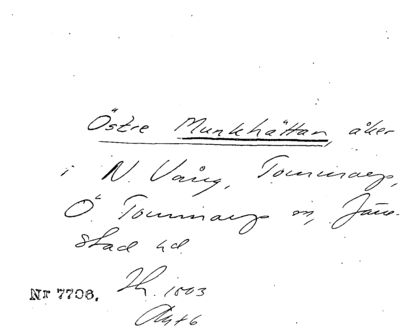 Östre Munkhättan, åker
i N. Vång, Tommarp,
Ö Tommarp sn, Järre-
stad hd.
Nr 7706. Th. 1803